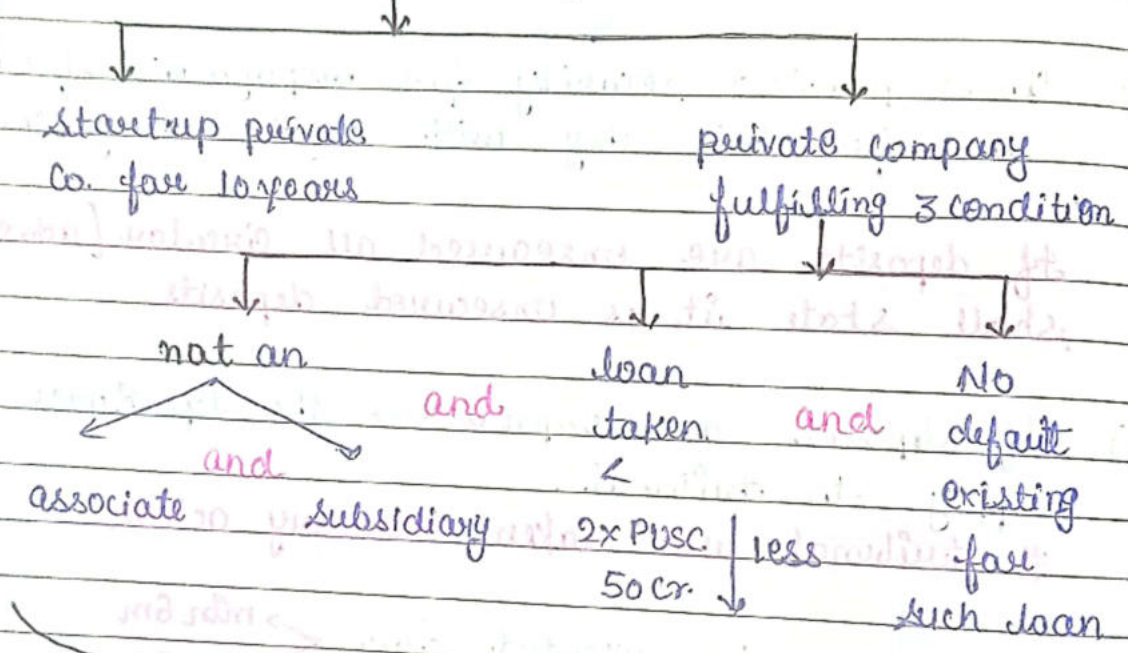 Startup private
Co. for 10 years
private company
fulfilling 3 condition
not an
and
associate subsidiary
and
loan
taken
<
2x PUSC
50 Cr.
less
and
No
default
existing
for
such loan